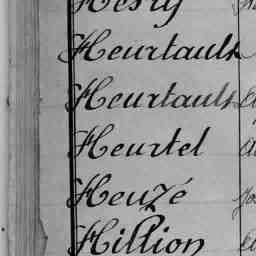 Henry
Heurtault
Heurtault
Heurtel
Heuzé
Hillion